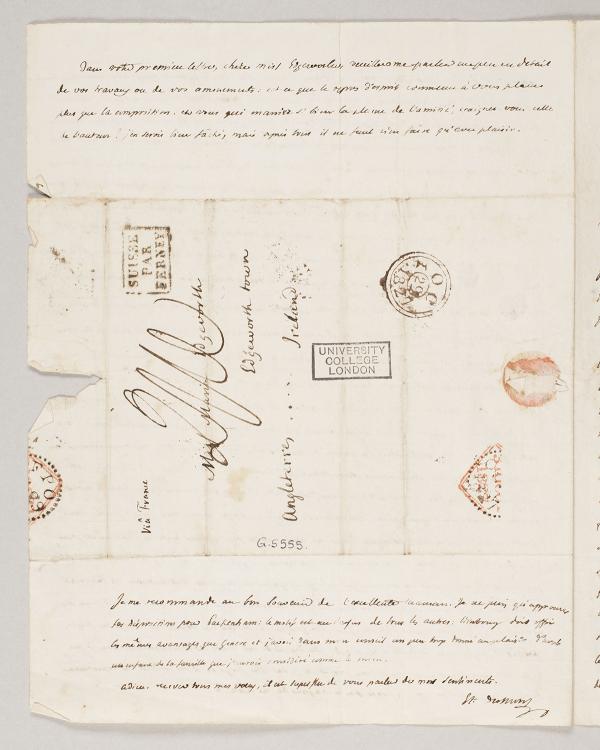 Dans votre premiere lettre, chere miss Edgeworth, veuillez me parler un peu en detail
de vos travaux ou de vos amusements: est ce que le repos d'esprit commence à vous plaire
plus que la composition. et vous qui maniez si bien la plume de l'amitié, craignez vous celle
de l'auteur? j'en serois bien faché, mais après tout il ne faut rien faire qu'avec plaisir.
SUISSE
PAR
FERNEY
Miss Maria Edgeworth
Edgeworth town
Angleterre ..... Ireland
via France
UNIVERSITY
COLLEGE
LONDON
OC
29
G.5555.
Je me recommande au bon souvenir de l'excellente maman. Je ne puis qu'approuver
ses dispositions pour Packenham: le motif est au dessus de tous les autres. doit offrir
les mêmes avantages que Geneve et j'avois dans mon conseil un peu trop donné au plaisir d'avoir
un enfant de la famille que j'aurois consideré comme le mien.
adieu. recevez tous mes vœux, il est superflu de vous parler de nos sentiments.
Et. Dumont